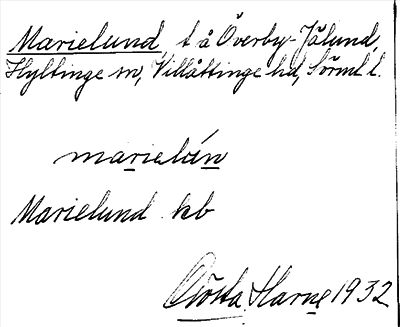 Marielund, t å Överby-Jälund,
Hyltinge sn, Villåttinge hd, Sörml. l.
marielún
Marielund kb
Gösta Harne 1932